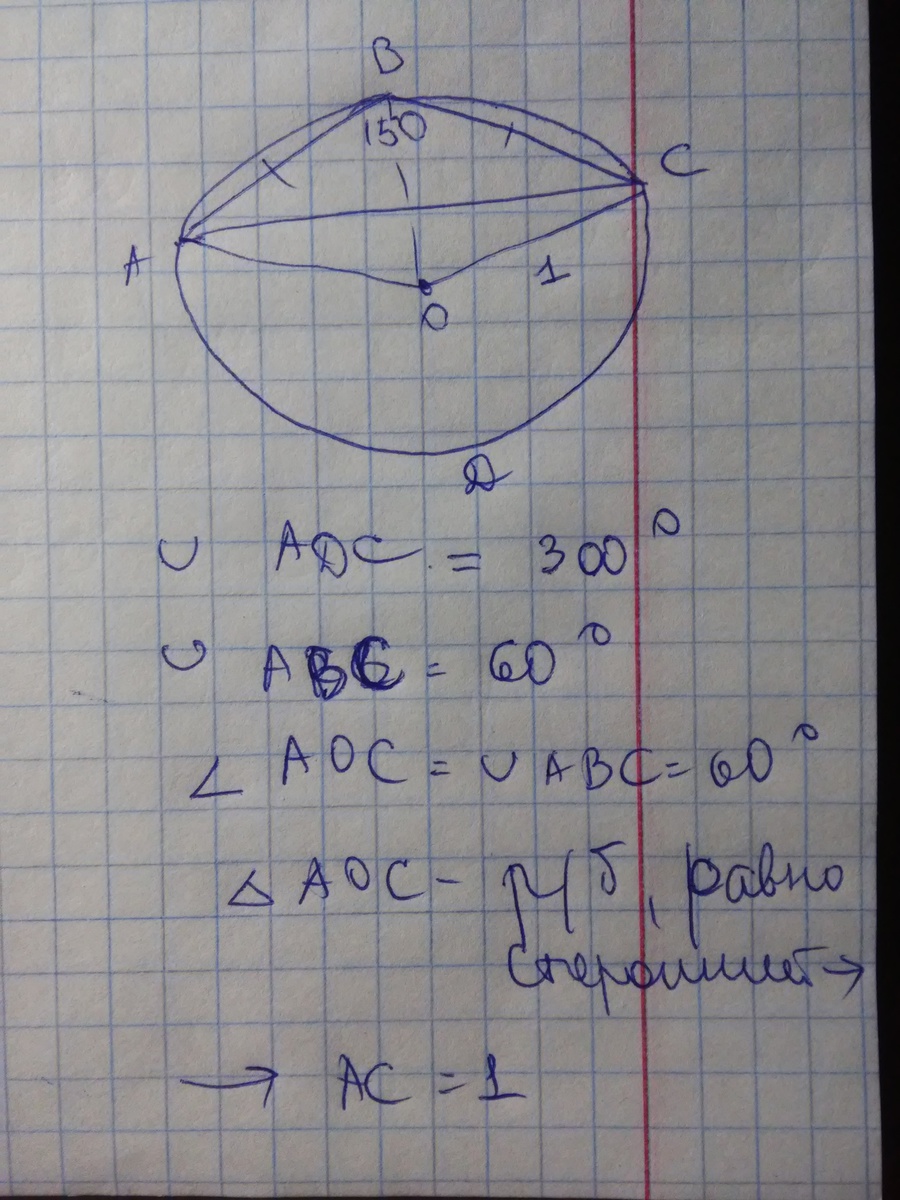 B
150
C
A
1
O
D
◡ ADC = 300°
◡ ABC = 60°
∠ AOC = ◡ ABC = 60°
△ AOC - р/б, равно
сторонний →
→ AC = 1